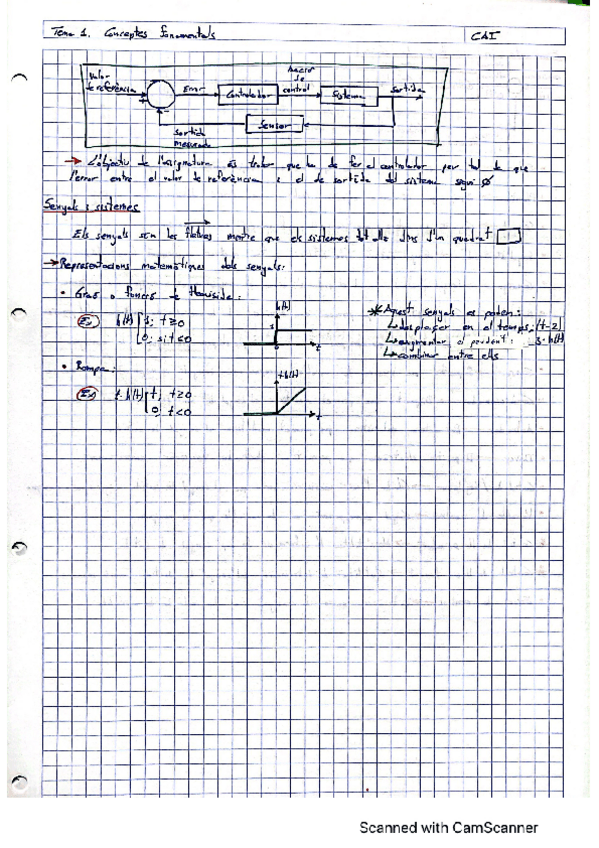 Tema 1. Conceptes fonamentals
CAI
Valor
de referència
Error
Controlador
Acció
de
control
Sistema
Sortida
Sensor
sortida
mesurada
→ L'objectiu de l'assignatura és trobar que ha de fer el controlador per tal de que
l'error entre el valor de referència i el de sortida del sistema sigui Ø
Senyals i sistemes
Els senyals són les fletxes mentre que els sistemes tot allò dins d'un quadrat
→ Representacions matemàtiques dels senyals:
• Graó o funció de Heaviside:
Ex
h(t) { 1; t≥0
0; si t<0
h(t)
1
0
t
* Aquest senyals es poden:
↳ desplaçar en el temps: (t-2)
↳ augmentar el pendent: 3·h(t)
↳ combinar entre ells
• Rampa:
Ex
t·h(t) { t; t≥0
0; t<0
t·h(t)
t
Scanned with CamScanner